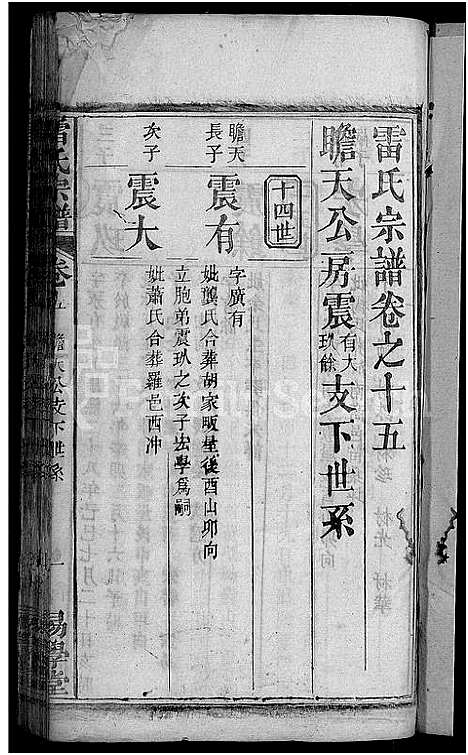 雷氏宗譜卷之十五
瞻天公房震有大玖餘支下世系
十四世
瞻天長子
震有
字廣有
妣龔氏合葬胡家畈屋後酉山卯向
立胞弟震玖之次子宏學爲嗣
次子
震大
妣蕭氏合葬羅邑西冲
雷氏宗譜
卷
瞻天公支下世系
一
易學堂